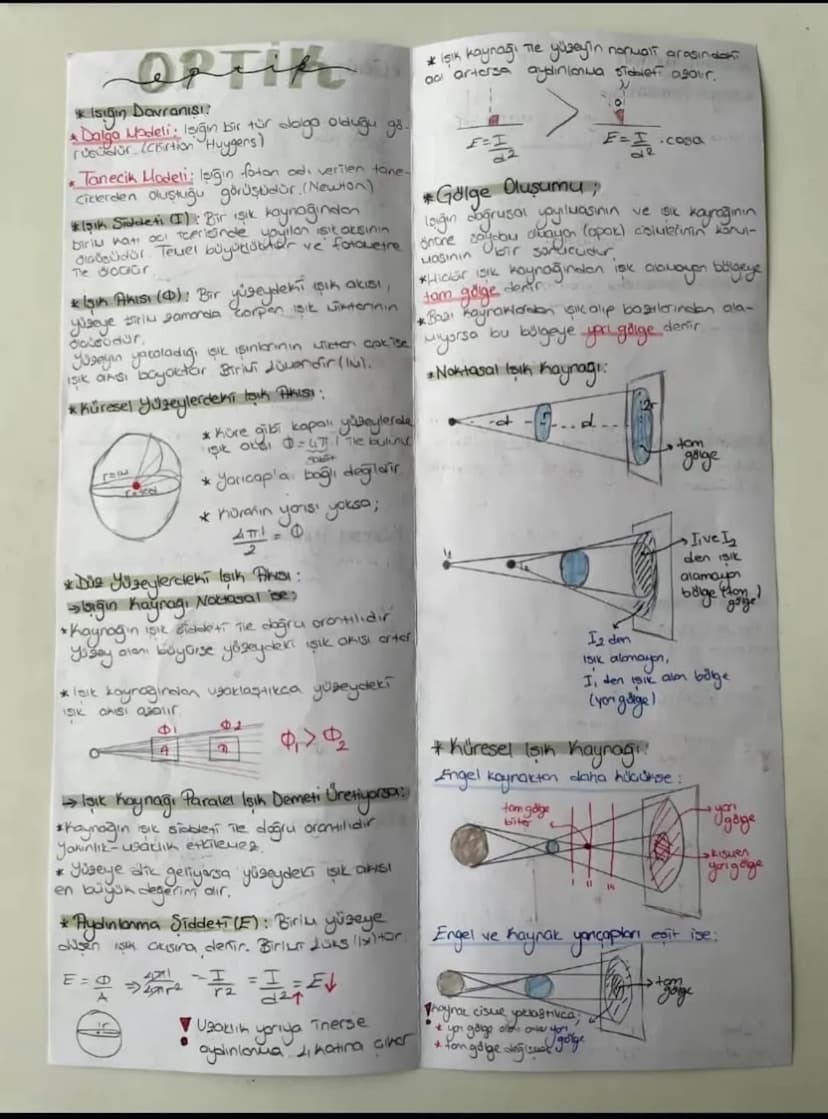 OPTİK
optik
* Işığın Davranışı:
* Dalga Modeli: Işığın bir tür dalga olduğu gö-
rüşüdür. (Chirtian Huygens)
* Tanecik Modeli: Işığın foton adı verilen tane-
ciklerden oluştuğu görüşüdür. (Newton)
* Işık Şiddeti (I): Bir ışık kaynağından
birim katı açı içerisinde yayılan ışık akısının
ölçüsüdür. Temel büyüklüktür ve fotometre
ile ölçülür.
* Işık Akısı (Φ): Bir yüzeydeki ışık akısı,
yüzeye birim zamanda çarpan ışık miktarının
ölçüsüdür.
Yüzeyin yakaladığı ışık ışınlarının miktarı çok ise
ışık akısı büyüktür. Birimi lümendir (lm).
* Küresel Yüzeylerdeki Işık Akısı:
* Küre gibi kapalı yüzeylerde
ışık akısı Φ = 4π.I ile bulunur
sabit
* Yarıçap'a bağlı değildir
* Kürenin yarısı yoksa;
4πI/2 = Φ
* Düz Yüzeylerdeki Işık Akısı:
→ Işığın Kaynağı Noktasal ise;
* Kaynağın ışık şiddeti ile doğru orantılıdır
Yüzey alanı büyürse yüzeydeki ışık akısı artar
* Işık kaynağından uzaklaştıkça yüzeydeki
ışık akısı azalır
Φ1 Φ2
A
Φ1 > Φ2
→ Işık Kaynağı Paralel Işık Demeti Üretiyorsa:
* Kaynağın ışık şiddeti ile doğru orantılıdır
Yakınlık-uzaklık etkilemez.
* Yüzeye dik geliyorsa yüzeydeki ışık akısı
en büyük değerini alır.
* Aydınlanma Şiddeti (E): Birim yüzeye
düşen ışık akısına denir. Birimi lüks (lx) tür.
E = Φ/A ⇒ 4πI/4πr² = I/r² = I/d²↑ = E↓
r
! Uzaklık yarıya inerse
aydınlanma 4 katına çıkar
* Işık kaynağı ile yüzeyin normali arasındaki
açı artarsa aydınlanma şiddeti azalır.
N
>
E = I/d²
E = I/d² . cosa
* Gölge Oluşumu;
Işığın doğrusal yayılmasının ve ışık kaynağının
önüne saydam olmayan (opak) cisimlerinin konul-
masının bir sonucudur.
* Hiçbir ışık kaynağından ışık alamayan bölgeye
tam gölge denir.
* Bazı kaynaklardan ışık alıp bazılarından ala-
mıyorsa bu bölgeye yarı gölge denir.
* Noktasal Işık Kaynağı:
d r d 2r
tam
gölge
I1 ve I2
den ışık
alamayan
bölge (tam
gölge)
I2 den
ışık alamayan,
I1 den ışık alan bölge
(yarı gölge)
* Küresel Işık Kaynağı:
Engel kaynaktan daha küçükse:
tam gölge
biter
yarı
gölge
kısmen
yarı gölge
I II III
Engel ve Kaynak yarıçapları eşit ise:
tam
gölge
! Kaynak cisme yaklaştıkça;
* yarı gölge alanı artar
yarı
gölge
* tam gölge değişmez